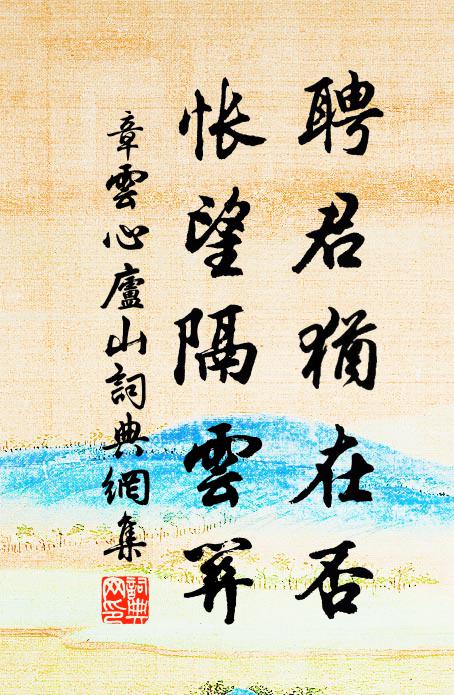 聘君猶在否
悵望隔雲
章雲心廬山詞典網集
詞典
网印